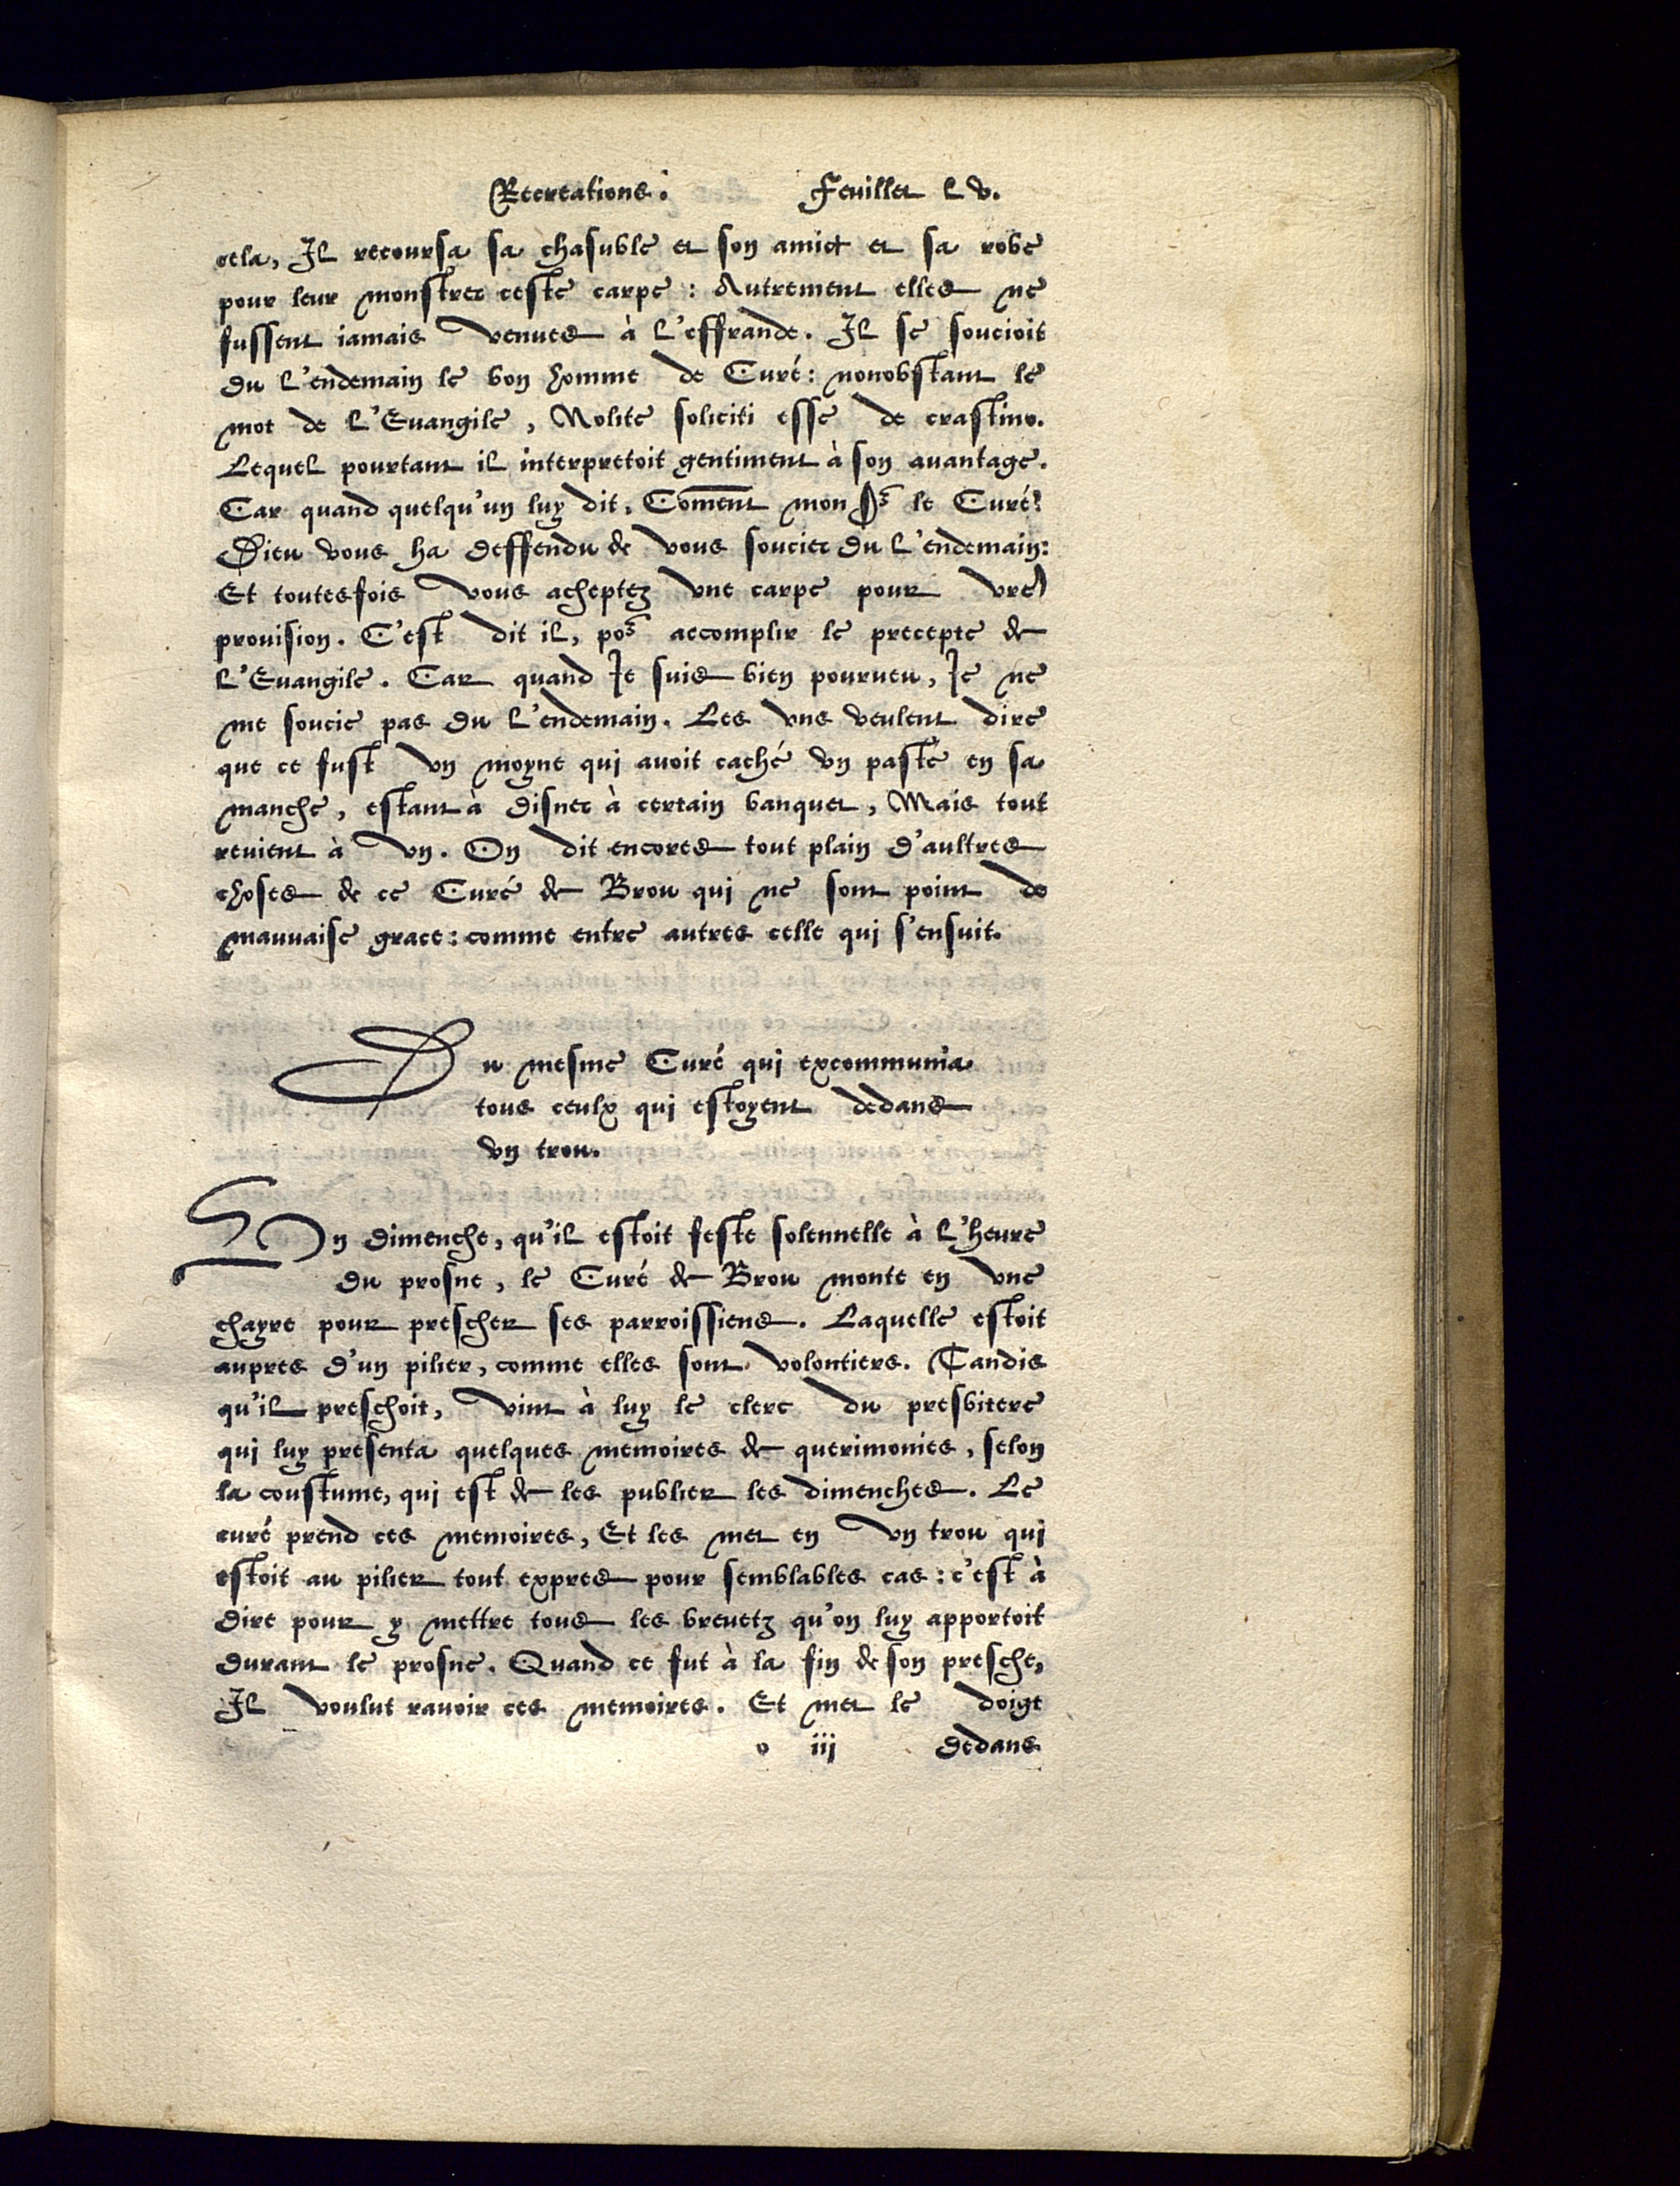 Recreations. Feuillet LV.
cela, Il recoursa sa chasuble et son amict et sa robe
pour leur monstrer ceste carpe : Autrement elles ne
fussent iamais venues à l'offrande. Il se soucioit
du l'endemain le bon homme de Curé: nonobstant le
mot de l'Euangile, Nolite soliciti esse de crastino.
Lequel pourtant il interpretoit gentiment à son auantage.
Car quand quelqu'un luy dit, Coment mon Sr le Curé?
Dieu vous ha deffendu de vous soucier du l'endemain:
Et toutesfois vous acheptez vne carpe pour vre
prouision. C'est dit il, por accomplir le precepte de
l'Euangile. Car quand Ie suis bien pourueu, Ie ne
me soucie pas du l'endemain. Les vns veulent dire
que ce fust vn moyne qui auoit caché vn pasté en sa
manche, estant à disner à certain banquet, Mais tout
reuient à vn. On dit encores tout plain d'aultres
choses de ce Curé de Brou qui ne sont point de
mauuaise grace: comme entre autres celle qui s'ensuit.
Du mesme Curé qui excommunia
tous ceulx qui estoyent dedans
vn trou.
Vn dimenche, qu'il estoit feste solennelle à l'heure
du prosne, le Curé de Brou monte en vne
chayre pour prescher ses parroissiens. Laquelle estoit
aupres d'un pilier, comme elles sont volontiers. Tandis
qu'il preschoit, vint à luy le clerc du presbitere
qui luy presenta quelques memoires de querimonies, selon
la coustume, qui est de les publier les dimenches. Le
curé prend ces memoires, Et les met en vn trou qui
estoit au pilier tout expres pour semblables cas: c'est à
dire pour y mettre tous les breuetz qu'on luy apportoit
durant le prosne. Quand ce fut à la fin de son presche,
Il voulut rauoir ces memoires. Et met le doigt
o iij dedans